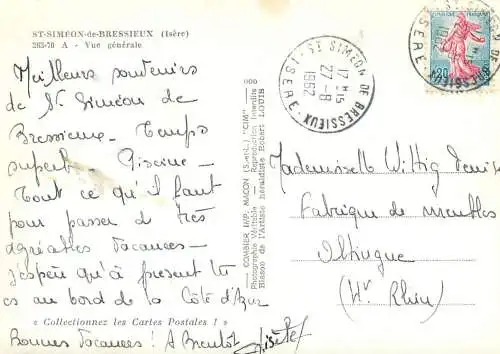 ST-SIMÉON-de-BRESSIEUX (Isère)
263-70 A - Vue générale
Meilleurs souvenirs
de St Siméon de
Bressieux - Temps
superbe - Piscine -
Tout ce qu'il faut
pour passer de très
agréables vacances -
J'espère qu'à présent tu
es au bord de la Côte d'Azur
« Collectionnez les Cartes Postales ! »
Bonnes Vacances ! A Bientôt
COMBIER IMP. MACON (S.-et-L.) "CIM"
Photographie Véritable - Reproduction Interdite
Blason de l'Artiste héraldiste Robert LOUIS
ST SIMEON DE BRESSIEUX
ISERE
17 H 15
27-8
1962
Mademoiselle Wittig Denise
Fabrique de meubles
(Ht Rhin)